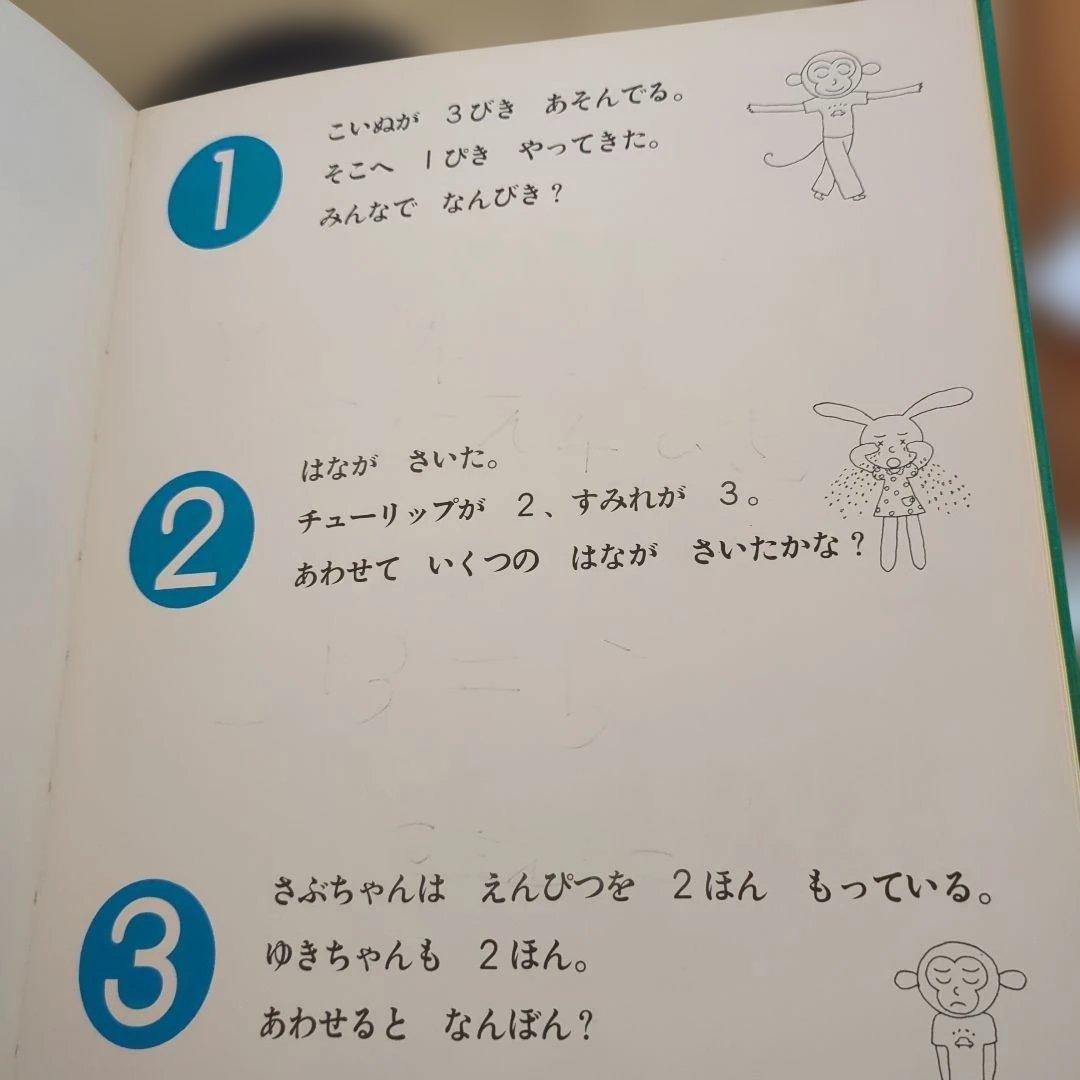 1
こいぬが　3びき　あそんでる。
そこへ　1ぴき　やってきた。
みんなで　なんびき？
2
はなが　さいた。
チューリップが　2、すみれが　3。
あわせて　いくつの　はなが　さいたかな？
3
さぶちゃんは　えんぴつを　2ほん　もっている。
ゆきちゃんも　2ほん。
あわせると　なんぼん？